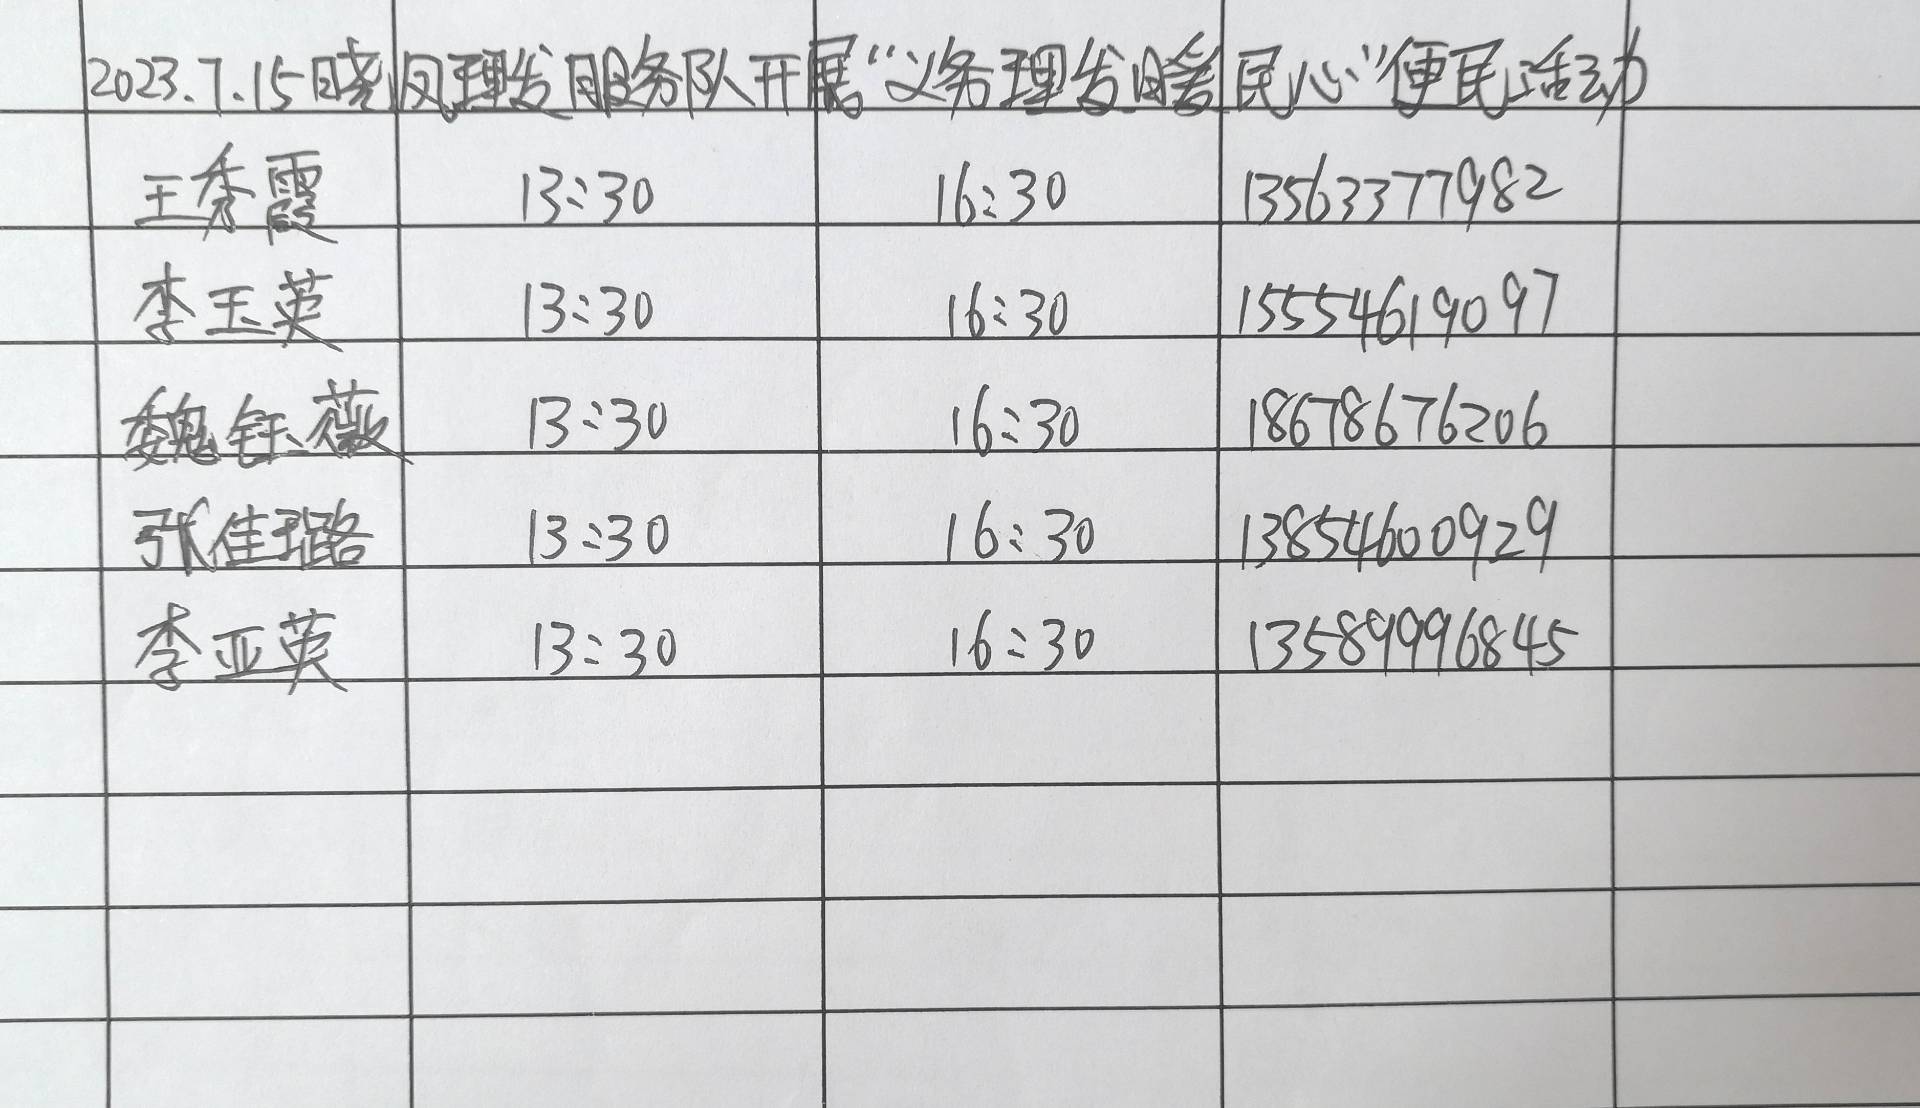 2023.7.15晓凤理发服务队开展“义务理发暖民心”便民活动
王秀霞 13:30 16:30 13563377982
李玉英 13:30 16:30 15554619097
魏钰薇 13:30 16:30 18678676206
张佳璐 13:30 16:30 13854600929
李亚英 13:30 16:30 13589996845